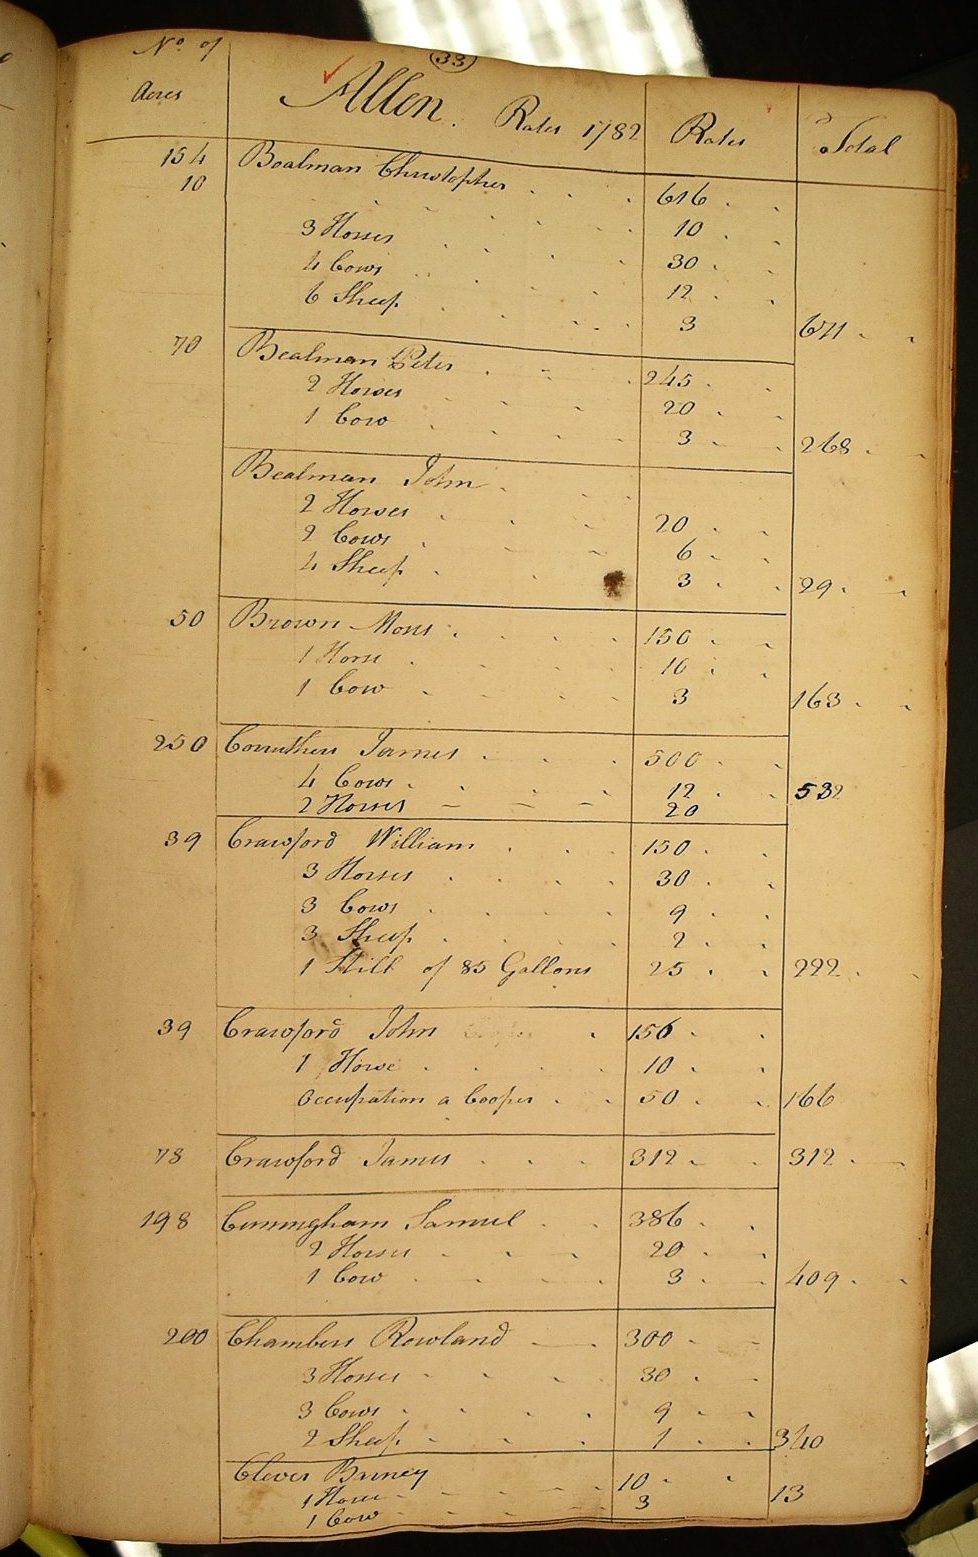 33
No. of Acres Allen. Rates 1782 Rates Total
154 Boalman Christopher 616
10 10
3 Horses 30
4 Cows 12
6 Sheep 3 671
70 Bealman Peter 245
2 Horses 20
1 Cow 3 268
Bealman John
2 Horses 20
2 Cows 6
4 Sheep 3 29
50 Brown Moses 150
1 Horse 10
1 Cow 3 163
250 Carruthers James 500
4 Cows 12 532
2 Horses 20
39 Crawford William 150
3 Horses 30
3 Cows 9
3 Sheep 2
1 Still of 85 Gallons 25 222
39 Crawford John 156
1 Horse 10
Occupation a Cooper 50 166
78 Crawford James 312 312
198 Cunningham Samuel 386
2 Horses 20
1 Cow 3 409
200 Chambers Rowland 300
3 Horses 30
3 Cows 9
2 Sheep 1 340
Clever Barney
1 Horse 10
1 Cow 3 13